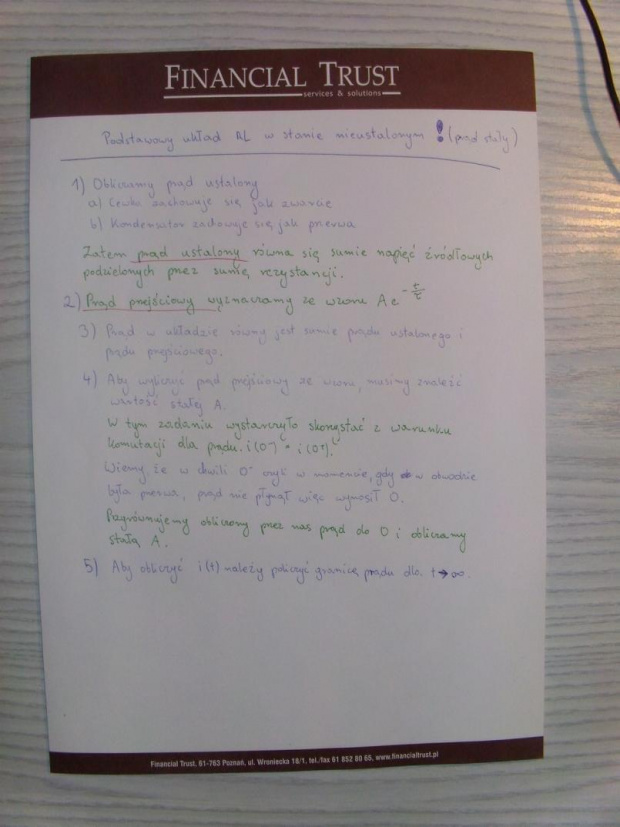 FINANCIAL TRUST
services & solutions
Podstawowy układ RL w stanie nieustalonym ! (prąd stały)
1) Obliczamy prąd ustalony
a) Cewka zachowuje się jak zwarcie
b) Kondensator zachowuje się jak przerwa
Zatem prąd ustalony równa się sumie napięć źródłowych
podzielonych przez sumę rezystancji.
2) Prąd przejściowy wyznaczamy ze wzoru A e^(-t/τ)
3) Prąd w układzie równy jest sumie prądu ustalonego i
prądu przejściowego.
4) Aby wyliczyć prąd przejściowy ze wzoru, musimy znaleźć
wartość stałej A.
W tym zadaniu wystarczyło skorzystać z warunku
komutacji dla prądu. i(0⁻) = i(0⁺).
Wiemy, że w chwili 0⁻ czyli w momencie, gdy w obwodzie
była przerwa, prąd nie płynął więc wynosił 0.
Przyrównujemy obliczony przez nas prąd do 0 i obliczamy
stałą A.
5) Aby obliczyć i(t) należy policzyć granicę prądu dla t→∞.
Financial Trust, 61-763 Poznań, ul. Wroniecka 18/1, tel./fax 61 852 80 65, www.financialtrust.pl